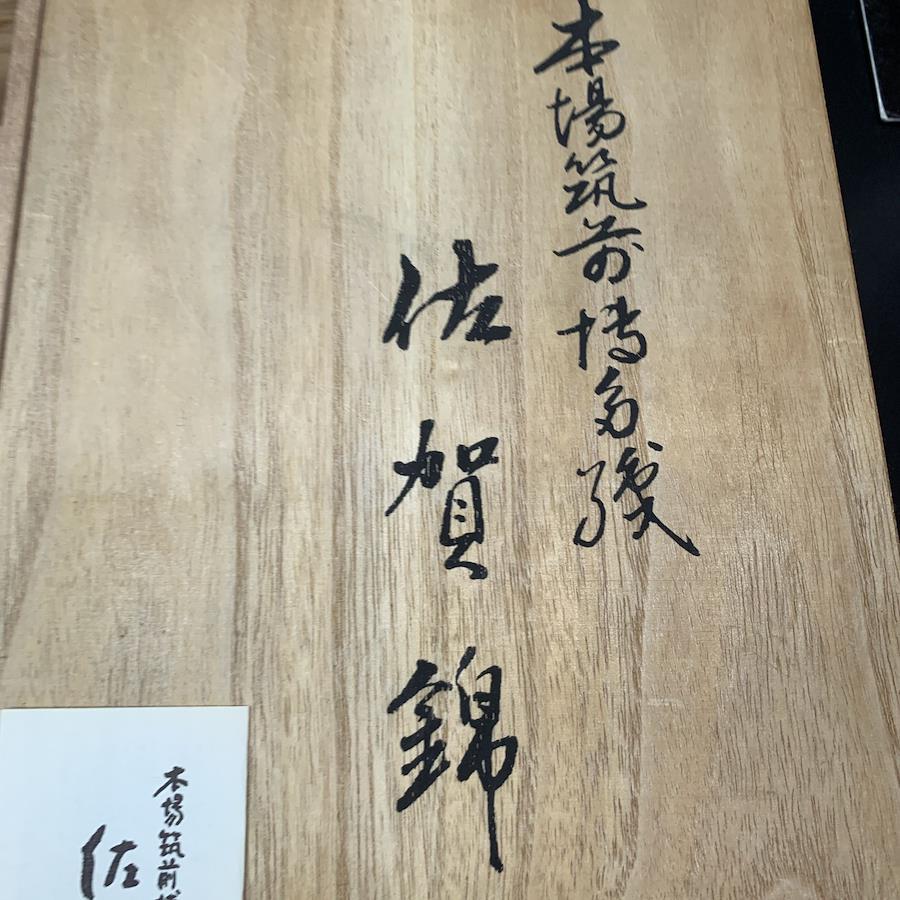 本場筑前博多織
佐賀錦
本場筑前博
佐